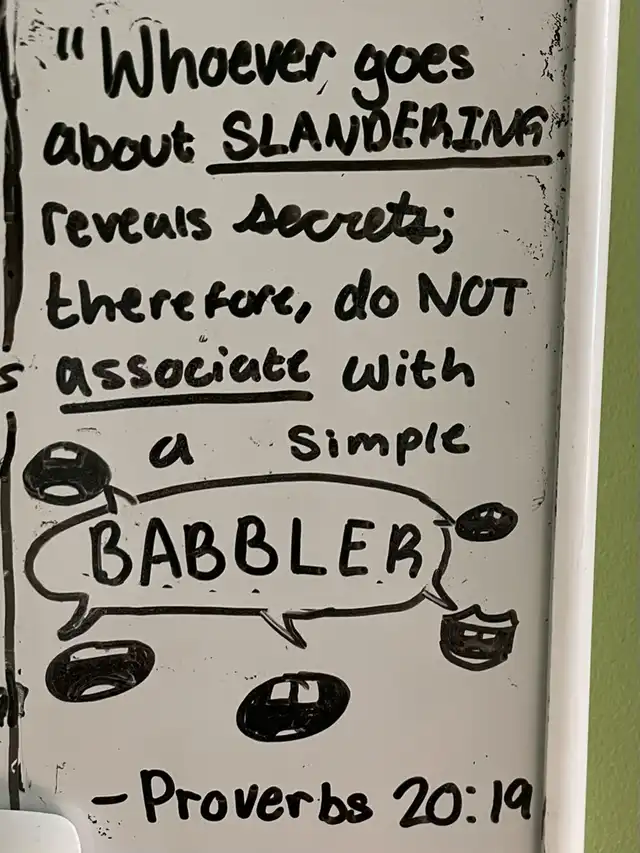 "Whoever goes
about SLANDERING
reveals secrets;
therefore, do NOT
associate with
a simple
BABBLER
- Proverbs 20:19